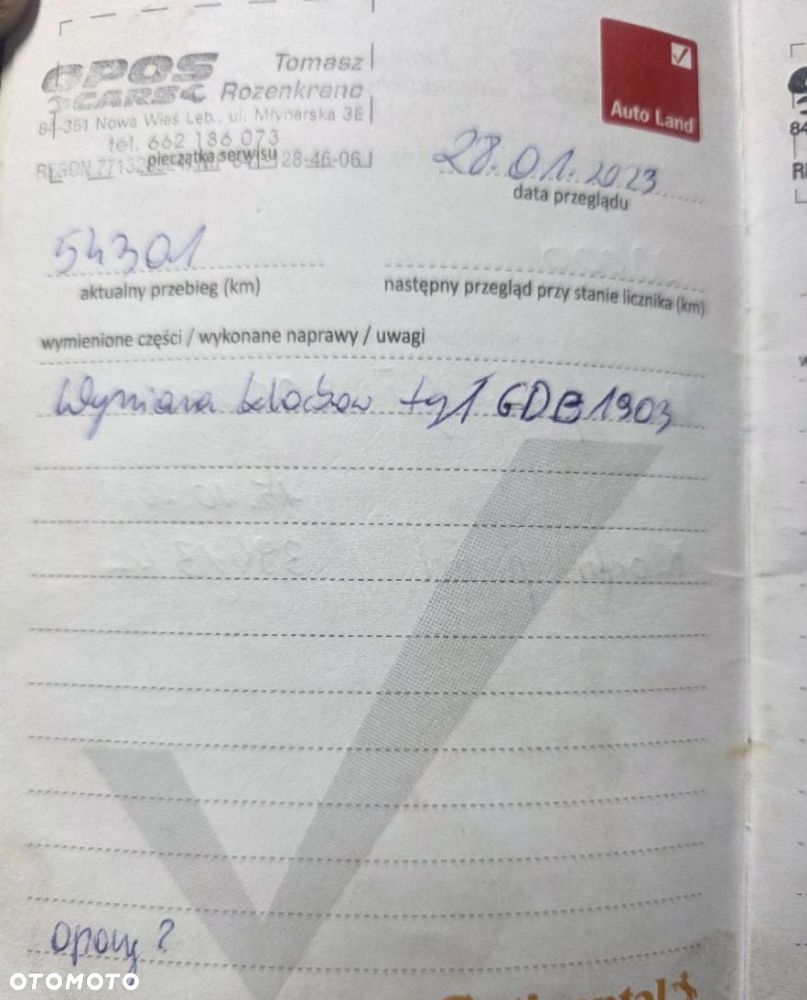 OPOS
CARS
Tomasz
Rozenkranc
84-351 Nowa Wieś Lęb., ul. Młynarska 3E
tel. 662 186 073
REGON 77132 28-46-06
pieczątka serwisu
Auto Land
28.01.2023
data przeglądu
54301
aktualny przebieg (km)
następny przegląd przy stanie licznika (km)
wymienione części / wykonane naprawy / uwagi
Wymiana klocków tył GDB1903
opony ?
OTOMOTO
84